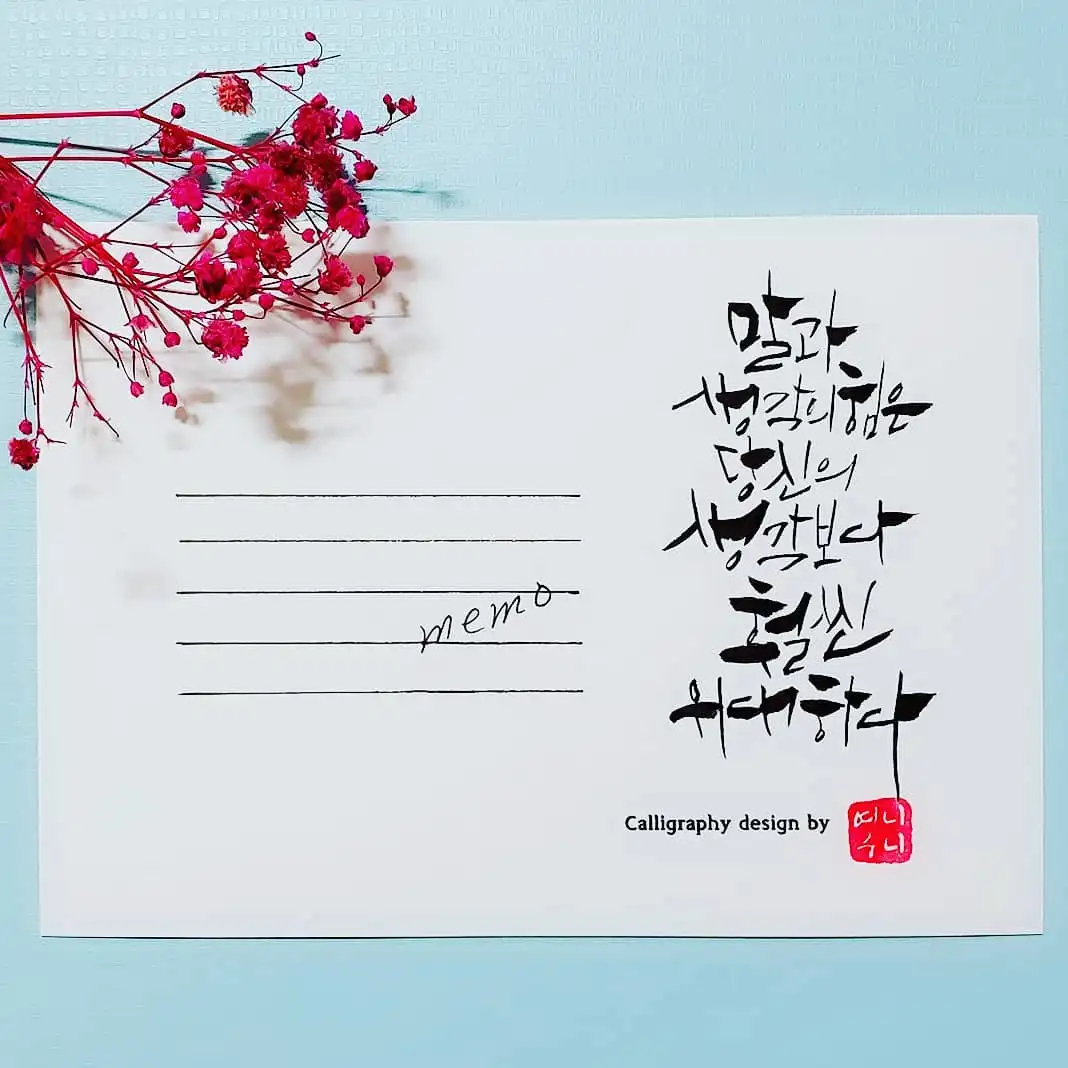 memo
말과
생각의 힘은
당신의
생각보다
훨씬
위대하다
Calligraphy design by
예니
수니